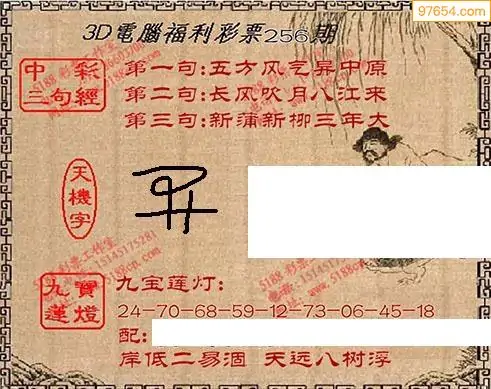 97654.com
3D電腦福利彩票256期
中彩三句經
第一句:五方风气异中原
第二句:长风吹月八江来
第三句:新蒲新柳三年大
天機字
5188 彩票工作室
15145175281
5188cn.com
九寶蓮燈
九宝莲灯:
24-70-68-59-12-73-06-45-18
配:
岸低二易涸 天远八树浮